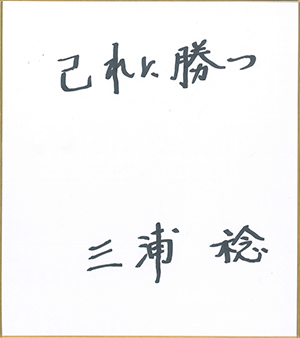 己れに勝つ
三浦 稔